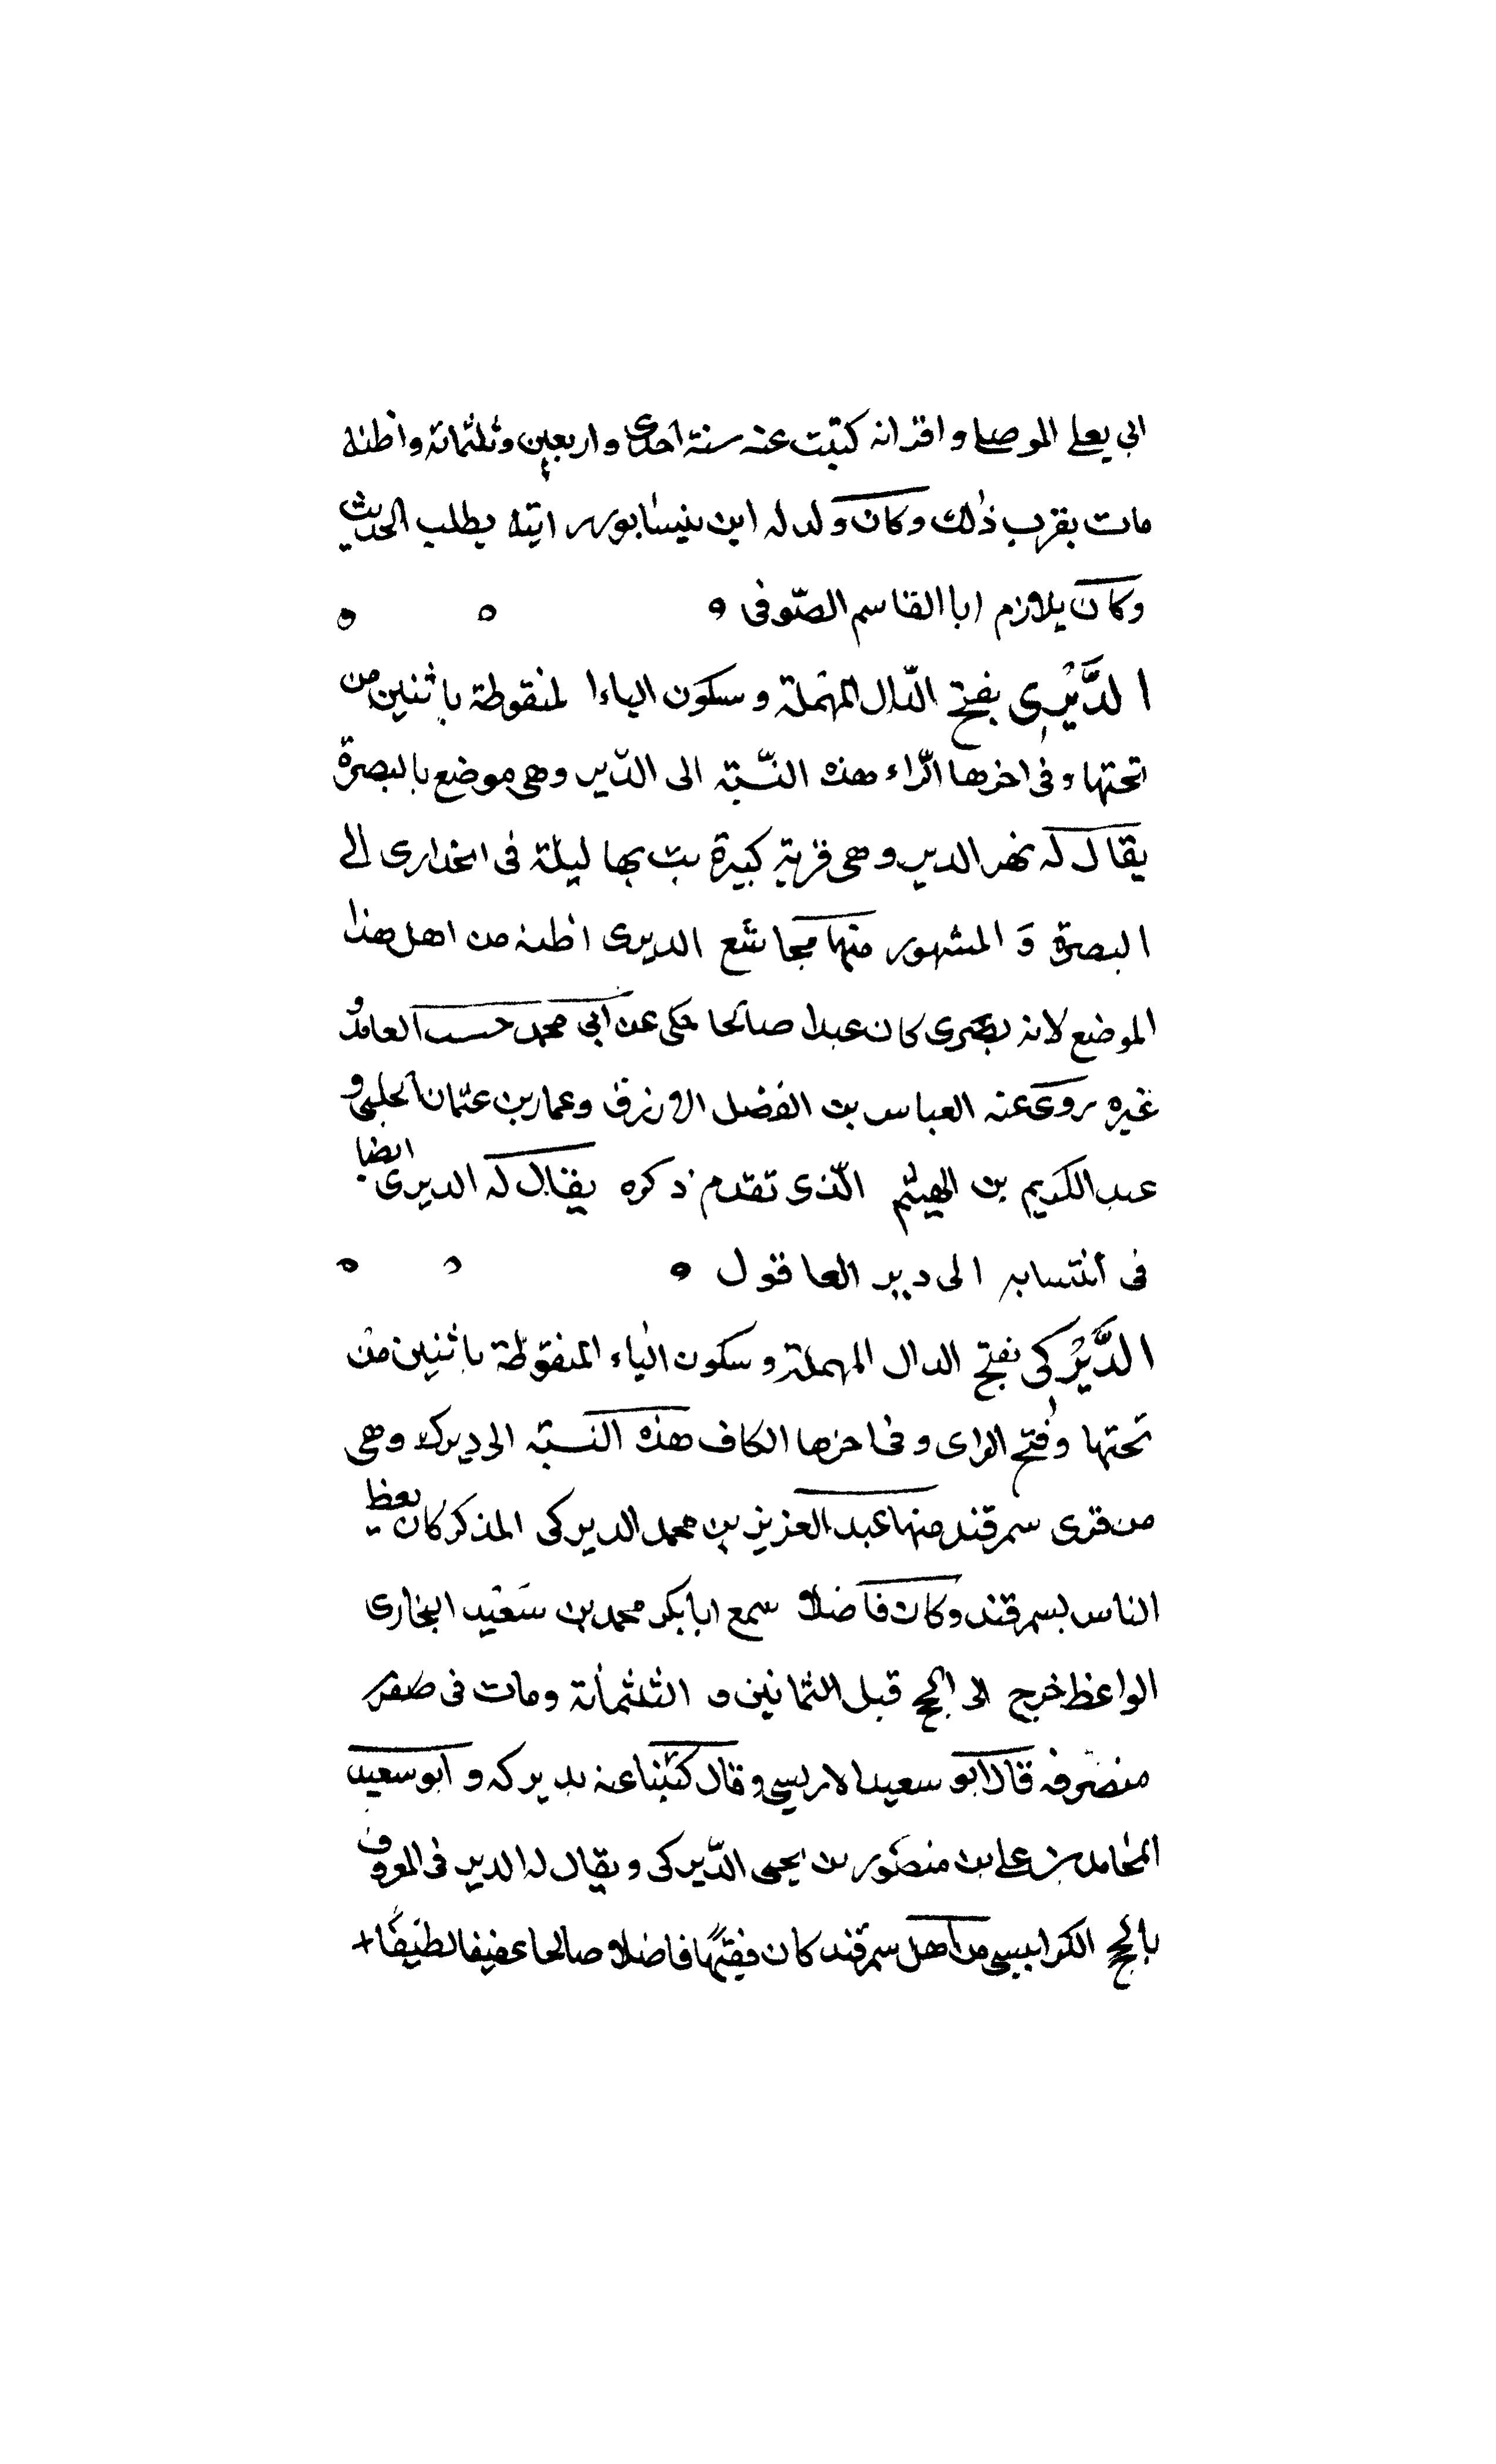 ابى يعلى الموصلى واقرانه كتبت عنه سنة احدى واربعين وثلثمائة واظنه
مات بقرب ذلك وكان ولد له ابن بنيسابور رايته يطلب الحديث
وكان يلازم ابا القاسم الصّوفى ه ه ه
الدَّيْرِى بفتح الدّال المهملة وسكون الياء المنقوطة باثنين من
تحتها وفى اخرها الرّاء هذه النّسبة الى الدّير وهى موضع بالبصرة
يقال له نهر الدير وهى قرية كبيرة بت بها ليلة فى انحدارى الى
البصرة وَ المشهور منها مجاشع الديرى اظنه من اهل هذا
الموضع لانه بصرى كان عبدا صالحا حكى عن ابى محمد حبيب العابد و
غيره روى عنه العباس بن الفضل الازرق وعمار بن عثمان الحلبى و
عبد الكريم بن الهيثم الّذى تقدم ذكره يقال له الديرى ايضا
فى انتسابه الى دير العاقول ه ه ه
الدَّيْرَكى بفتح الدال المهملة وسكون الياء المنقوطة باثنين من
تحتها وفتح الراى وفى اخرها الكاف هذه النسبة الى ديرك وهى
من قرى سمرقند منها عبد العزيز بن محمد الديركى المذكر كان يعظ
الناس بسمرقند وكان فاضلا سمع ابا بكر محمد بن سَعيد البخارى
الواعظ خرج الى الحج قبل الثمانين و الثلثمائة ومات فى صفر
منصرفه قال ابو سعيد الادريسى وقال كتبنا عنه بديركه و ابو سعيد
المحامد بن على بن منصور بن يحيى الدّيركى ويقال له الدير فى المعروف
بالحج الكرابيسى من اهل سمرقند كان فقيهًا فاضلا صالحا عفيفا لطيفًا+